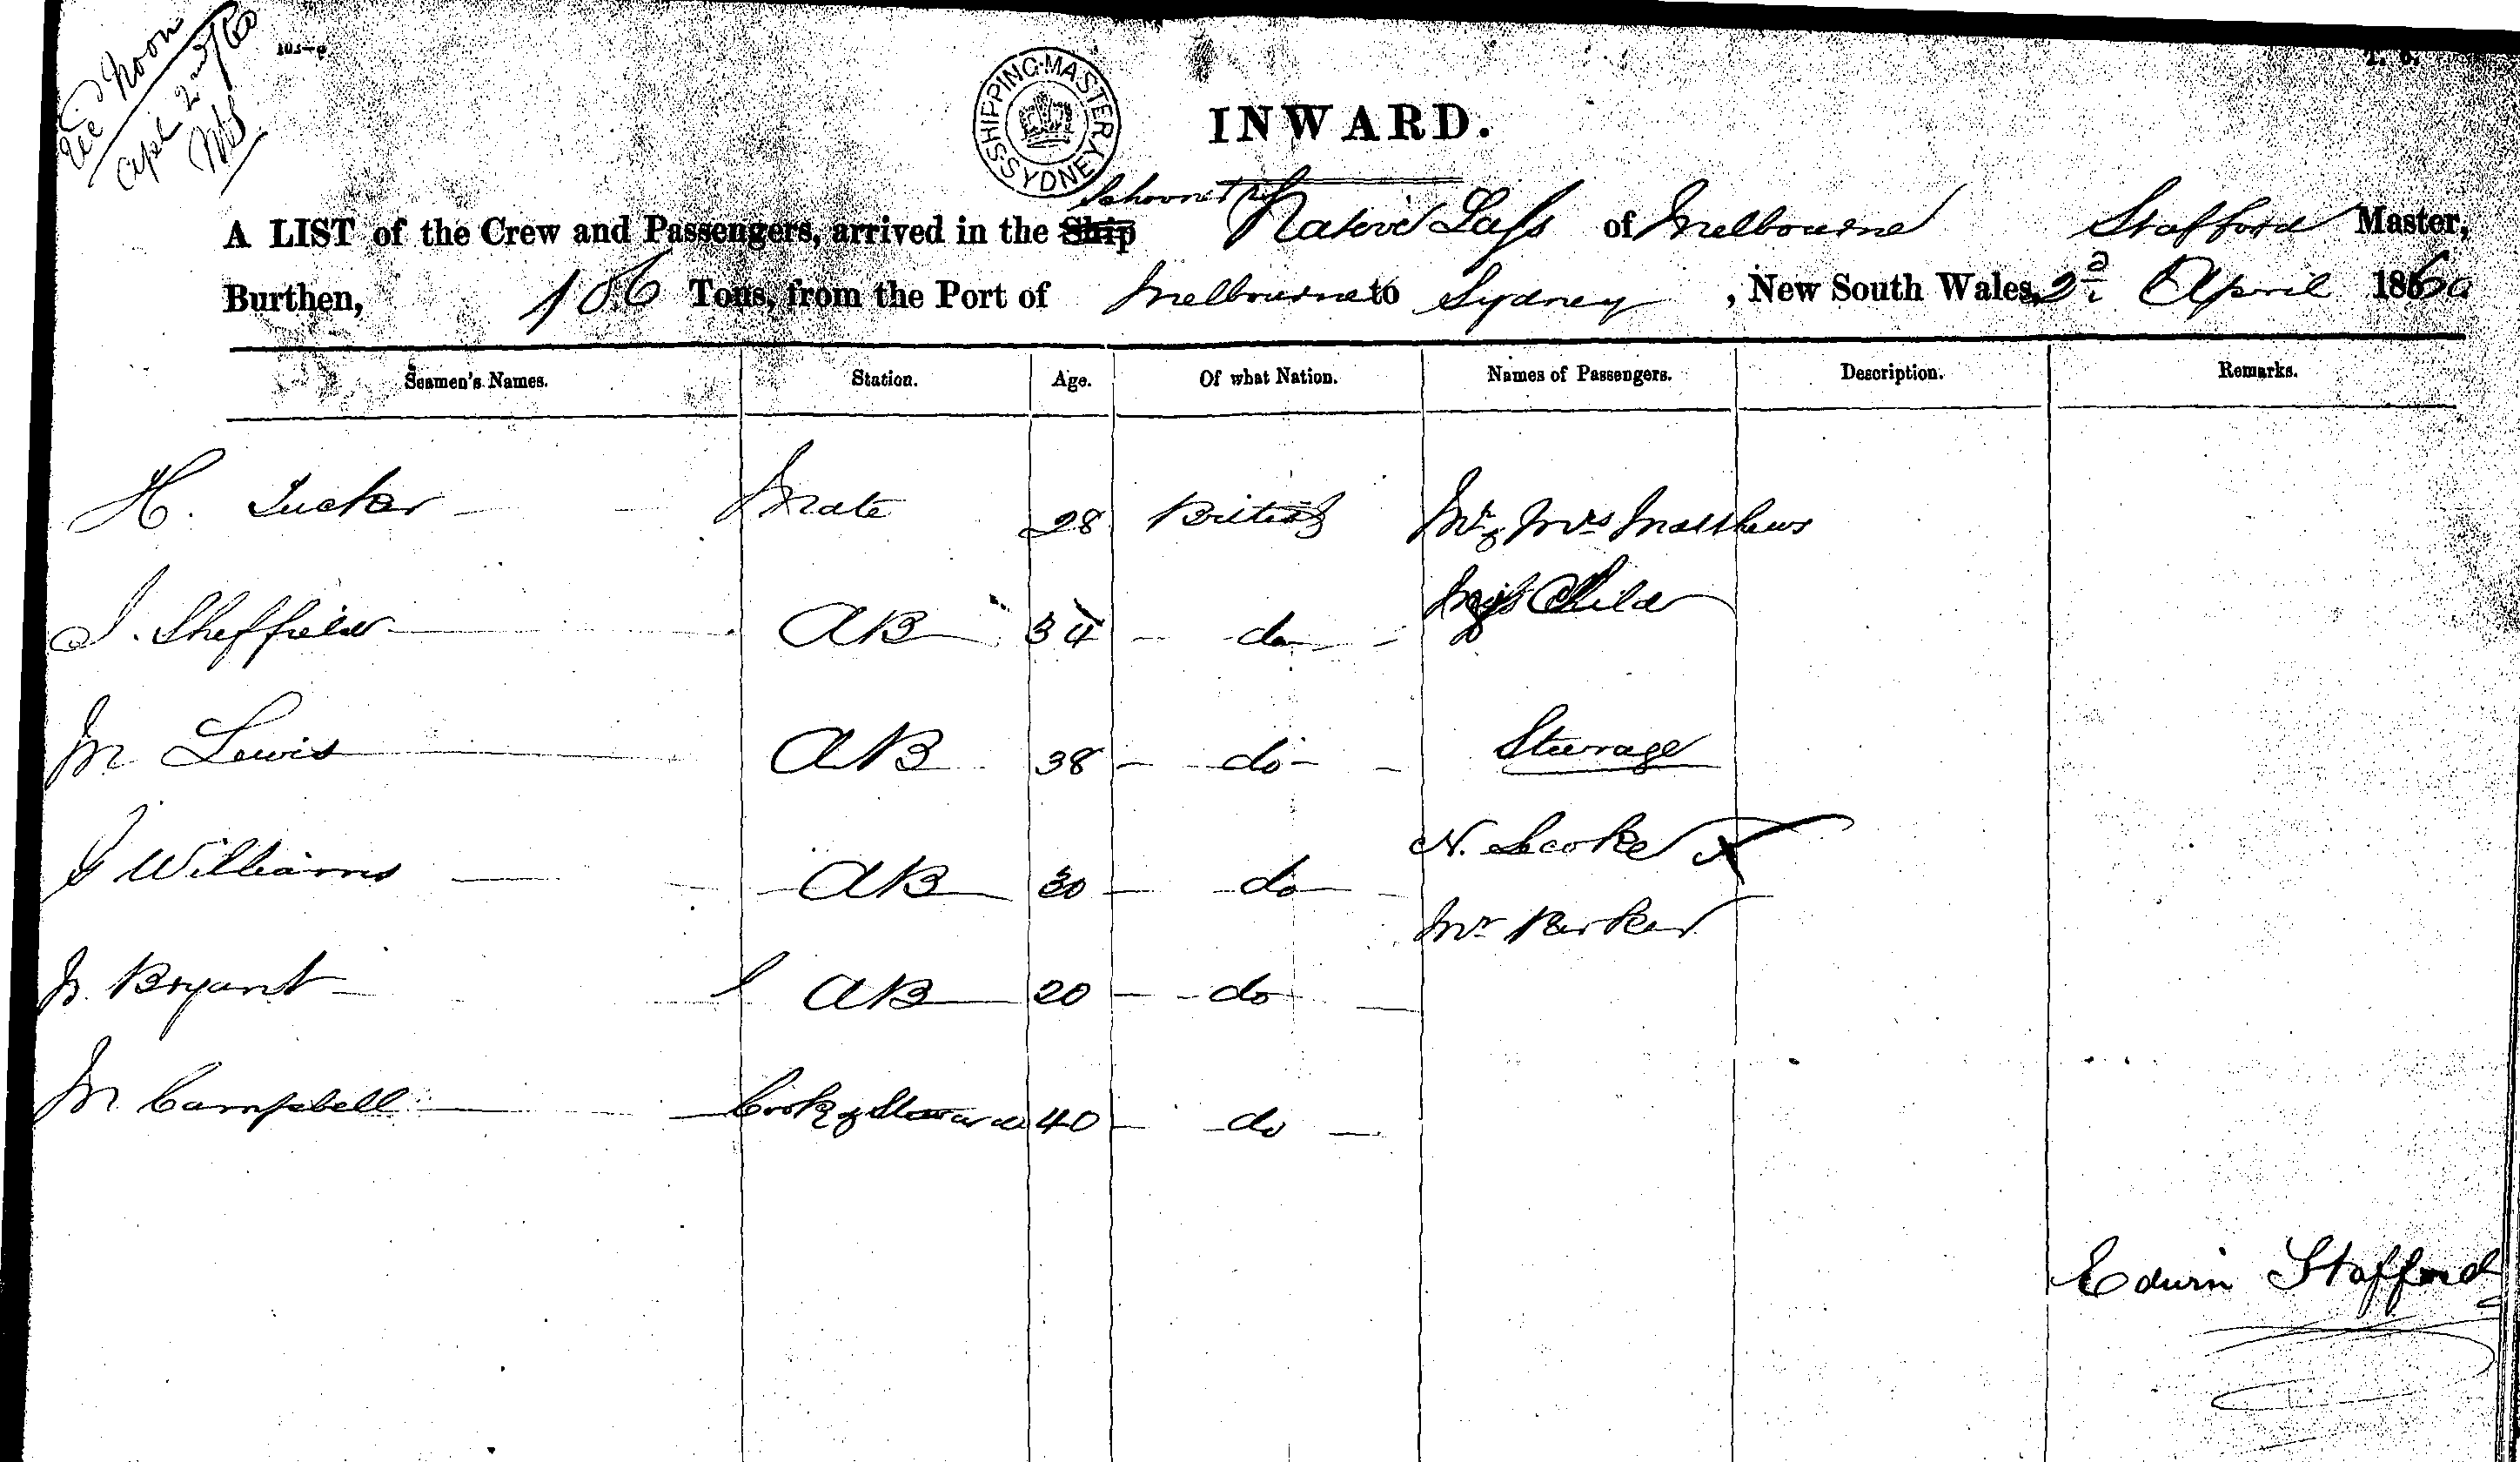 Noon
Apl 2nd /60
SHIPPING MASTER
SYDNEY
INWARD.
Schooner
A LIST of the Crew and Passengers, arrived in the Ship Native Lass of Melbourne Stafford Master,
Burthen, 106 Tons, from the Port of Melbourne to Sydney, New South Wales, 2d April 1860
Seamen's Names. Station. Age. Of what Nation. Names of Passengers. Description. Remarks.
H. Tucker Mate 28 British Mr & Mrs Matthews
J. Sheffield AB 34 do Child
M Lewis AB 38 do Steerage
J Williams AB 30 do N.
Mr Parker
Bryant AB 20 do
M Campbell Cook & Steward 40 do
Edwin Stafford